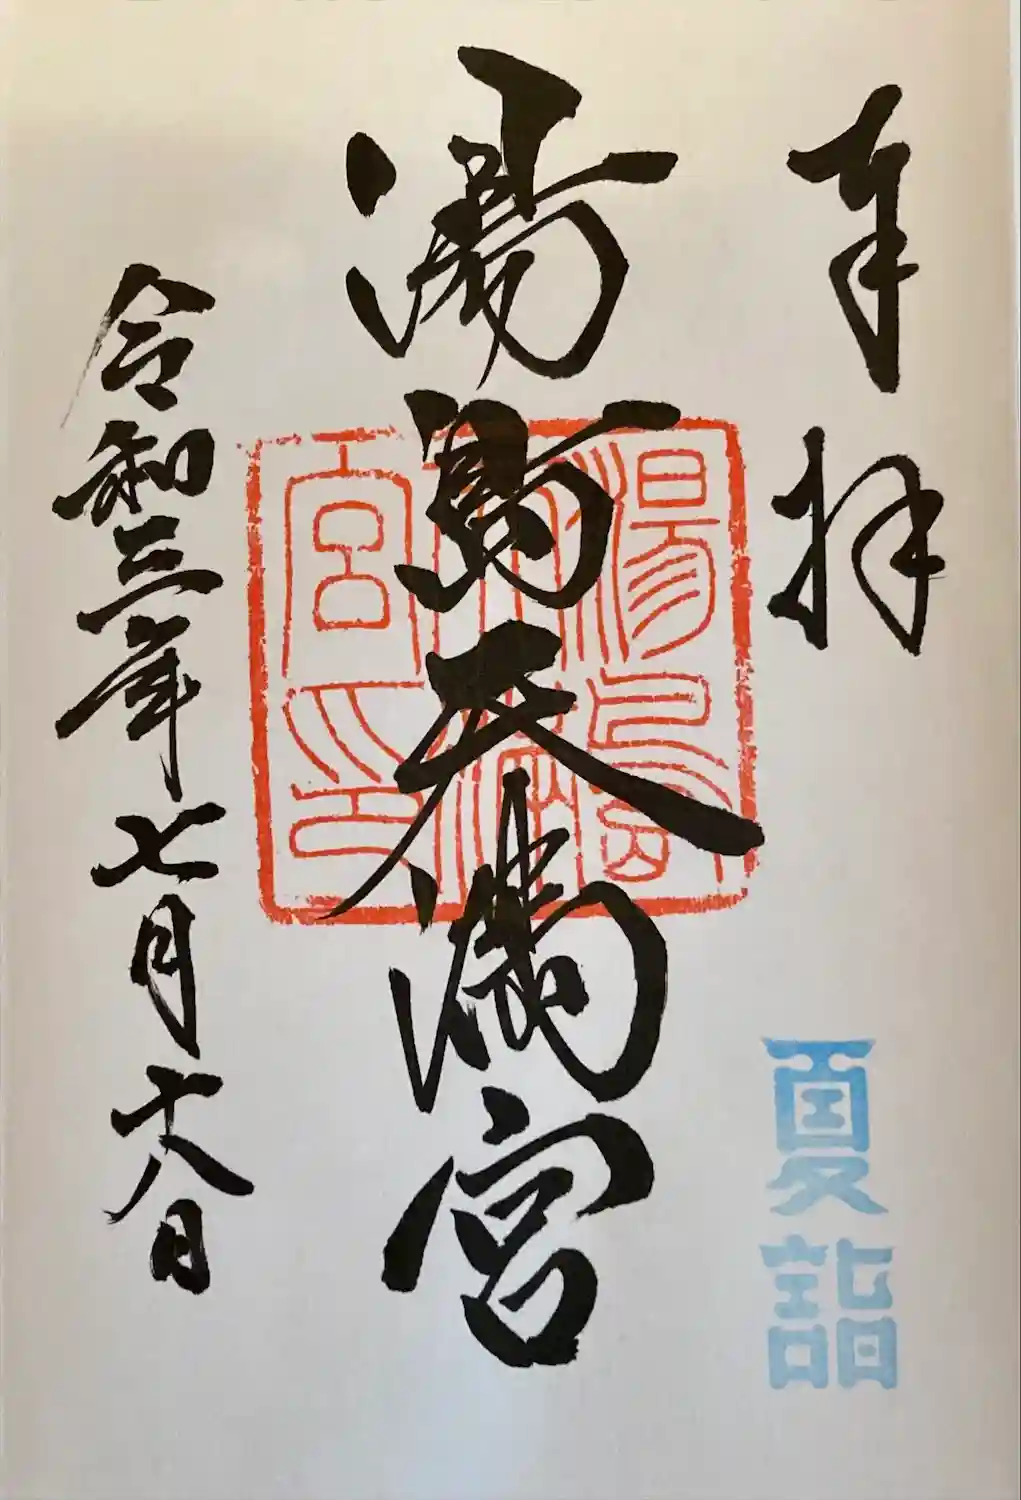 奉拝
夏詣
湯島天満宮
湯島
天神
宮印
令和三年七月十八日